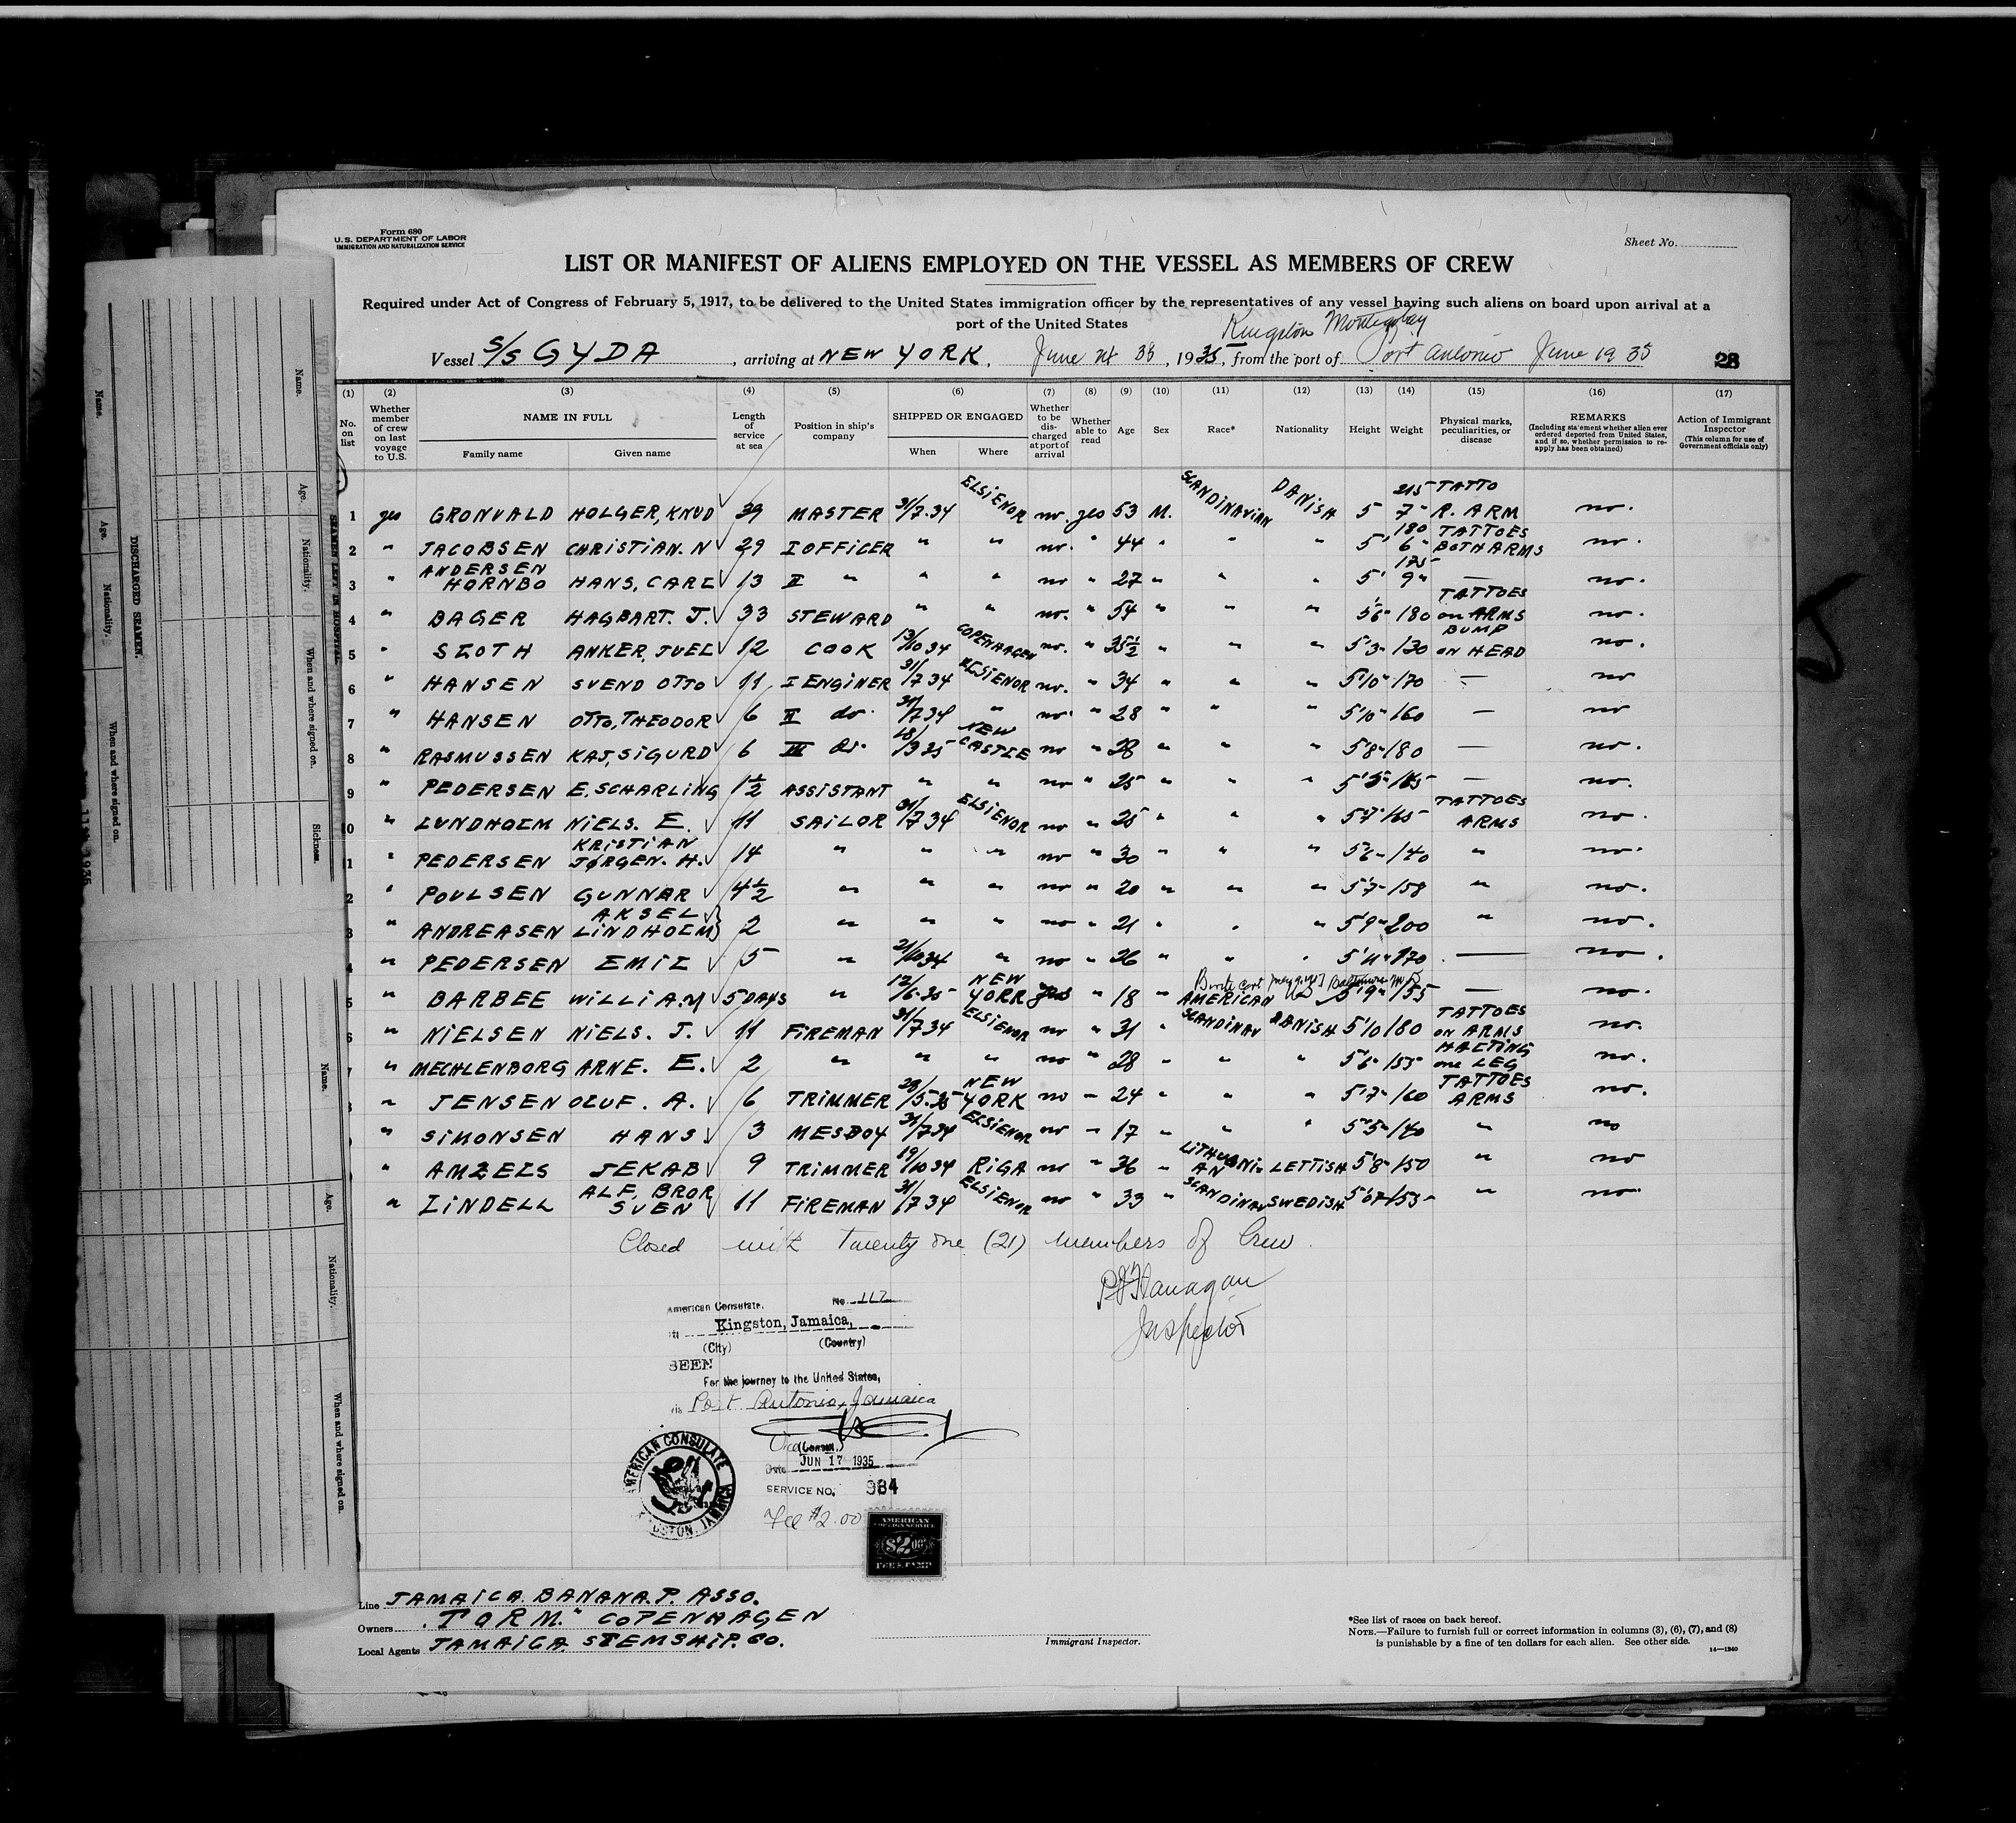 Form 680
U.S. DEPARTMENT OF LABOR
IMMIGRATION AND NATURALIZATION SERVICE
Sheet No.
LIST OR MANIFEST OF ALIENS EMPLOYED ON THE VESSEL AS MEMBERS OF CREW
Required under Act of Congress of February 5, 1917, to be delivered to the United States immigration officer by the representatives of any vessel having such aliens on board upon arrival at a
port of the United States
Kingston Montegobay
Vessel S/S GYDA, arriving at NEW YORK, June 24, 1935, from the port of Port Antonio June 19 35 28
(1) (2) (3) (4) (5) (6) (7) (8) (9) (10) (11) (12) (13) (14) (15) (16) (17)
No. on list Whether member of crew on last voyage to U.S. NAME IN FULL Family name Given name Length of service at sea Position in ship's company SHIPPED OR ENGAGED When Where Whether to be discharged at port of arrival Whether able to read Age Sex Race* Nationality Height Weight Physical marks, peculiarities, or disease REMARKS (Including statement whether alien ever ordered deported from United States, and if so, whether permission to reapply has been obtained) Action of Immigrant Inspector (This column for use of Government officials only)
1 yes GRONVALD HOLGER, KNUD 39 MASTER 31/7-34 ELSiENOR no yes 53 M. SCANDiNAViAN DANiSH 5 7" 215 TATTO R. ARM no.
2 " JACOBSEN CHRiSTiAN. N 29 I OFFiCER " " no. " 44 " " " 5' 6" 180 TATTOES BOTH ARMS no.
3 " ANDERSEN HORNBO HANS, CARL 13 II " " " no " 27 " " " 5' 9" 175 — no.
4 " BAGER HAGBART. J. 33 STEWARD " " no. " 54 " " " 5'6" 180 TATTOES on ARMS no.
5 " SLOTH ANKER, JUEL 12 COOK 13/10 34 COPENHAGEN no. " 35½ " " " 5'3" 130 BUMP ON HEAD no.
6 " HANSEN SVEND OTTO 11 I ENGiNER 31/7 34 ELSiENOR no. " 34 " " " 5'10" 170 — no
7 " HANSEN OTTO, THEODOR 6 II do. 31/7 34 " no. " 28 " " " 5'10" 160 — no
8 " RASMUSSEN KAJ, SiGURD 6 III do. 18/1335 NEW CASTLE no " 28 " " " 5'8" 180 — no.
9 " PEDERSEN E. SCHARLiNG 1½ ASSiSTANT " " no " 25 " " " 5'5" 165 — no.
10 " LUNDHOLM NiELS. E. 11 SAiLOR 31/7 34 ELSiENOR no " 25 " " 5'7" 165 TATTOES ARMS no.
1 " PEDERSEN KRiSTiAN JØRGEN. H. 14 " " " no " 30 " " " 5'6" 140 " no.
2 " POULSEN GUNNAR 4½ " " " no " 20 " " " 5'7" 158 " no.
3 " ANDREASEN AKSEL LiNDHOLM 2 " " " no " 21 " " " 5'9" 200 " no.
4 " PEDERSEN EMiL 5 " 21/10 34 " no " 26 " " " 5'11" 170 — no.
5 " BARBEE WiLLiAM 5 DAYS " 12/6-35 NEW YORK yes " 18 " AMERiCAN 5'9" 155 — no.
6 " NiELSEN NiELS. J. 11 FiREMAN 31/7 34 ELSiENOR no " 31 " SCANDiNAV DANiSH 5'10 180 TATTOES on ARMS no.
7 " MECHLENBORG ARNE. E. 2 " " " no " 28 " " " 5'6" 155 HALTiNG one LEG no.
8 " JENSEN OLUF. A. 6 TRiMMER 28/5-35 NEW YORK no " 24 " " " 5'7" 160 TATTOES ARMS no.
" SiMONSEN HANS 3 MESBOY 31/7 34 ELSiENOR no " 17 " " " 5'5" 140 " no
" AMZELS JEKAB 9 TRiMMER 19/10 34 RiGA no " 36 " LiTHUANiAN LETTiSH 5'8" 150 " no
" LiNDELL ALF, BROR SVEN 11 FiREMAN 31/7 34 ELSiENOR no " 33 " SCANDiNAV SWEDiSH 5'07 153 " no.
Closed with twenty one (21) members of Crew.
Flanagan
Inspector
American Consulate, No. 117
Kingston, Jamaica,
(City) (Country)
SEEN
For the journey to the United States,
Port Antonio, Jamaica
Vice (Consul.)
Date JUN 17 1935
SERVICE NO. 984
Fee $2.00
AMERICAN CONSULATE
KINGSTON, JAMAICA
AMERICAN
FOREIGN SERVICE
$2.00
FEE STAMP
Line JAMAiCA. BANANA. P. ASSO.
Owners "TORM." COPENHAGEN
Local Agents JAMAiCA. STEMSHiP. CO.
Immigrant Inspector.
*See list of races on back hereof.
NOTE.—Failure to furnish full or correct information in columns (3), (6), (7), and (8)
is punishable by a fine of ten dollars for each alien. See other side.
14—1240
SEAMEN LEFT IN HOSPITAL
Name. Age. Nationality. When and where signed on. Sickness.
DISCHARGED SEAMEN.
Name. Age. Nationality. When and where signed on.
Name. Age. Nationality. When and where signed on.